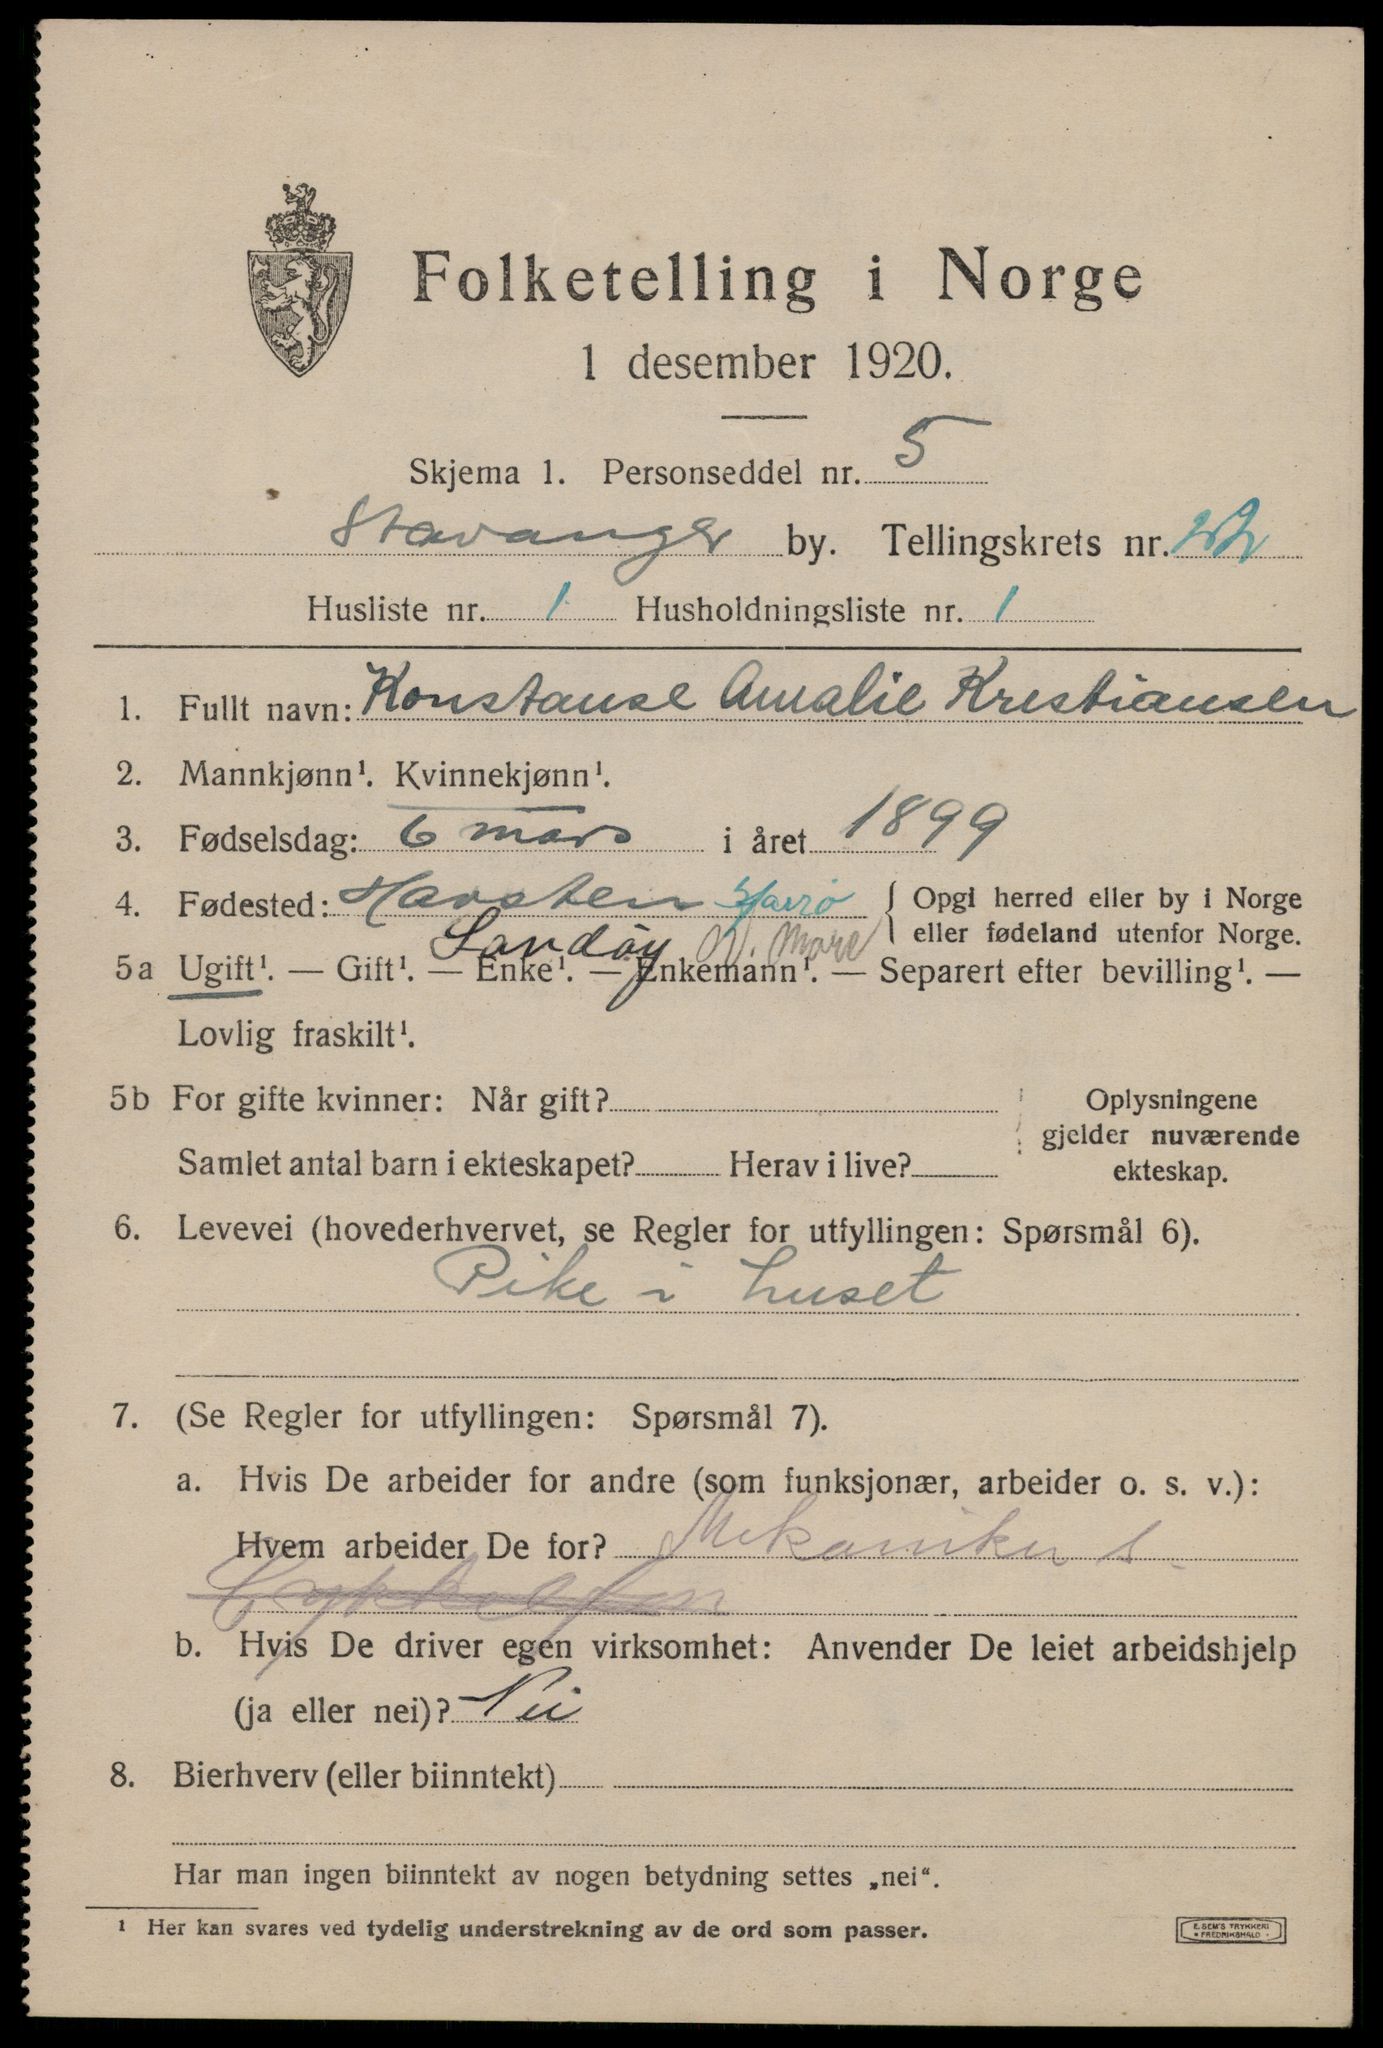 Folketelling i Norge
1 desember 1920.
Skjema 1. Personseddel nr. 5
Stavanger by. Tellingskrets nr. 22
Husliste nr. 1 Husholdningsliste nr. 1
1. Fullt navn: Konstanse Amalie Kristiansen
2. Mannkjønn¹. Kvinnekjønn¹.
3. Fødselsdag: 6 mars i året 1899
4. Fødested: Harsten { Opgi herred eller by i Norge
Sandøy N. Møre eller fødeland utenfor Norge.
5a Ugift¹. — Gift¹. — Enke¹. — Enkemann¹. — Separert efter bevilling¹. —
Lovlig fraskilt¹.
5b For gifte kvinner: Når gift? Oplysningene
gjelder nuværende
Samlet antal barn i ekteskapet? Herav i live? ekteskap.
6. Levevei (hovederhvervet, se Regler for utfyllingen: Spørsmål 6).
Pike i huset
7. (Se Regler for utfyllingen: Spørsmål 7).
a. Hvis De arbeider for andre (som funksjonær, arbeider o. s. v.):
Hvem arbeider De for? Mekaniker s.
b. Hvis De driver egen virksomhet: Anvender De leiet arbeidshjelp
(ja eller nei)? Nei
8. Bierhverv (eller biinntekt)
Har man ingen biinntekt av nogen betydning settes „nei“.
¹ Her kan svares ved tydelig understrekning av de ord som passer.
E. SEM'S TRYKKERI
FREDRIKSHALD